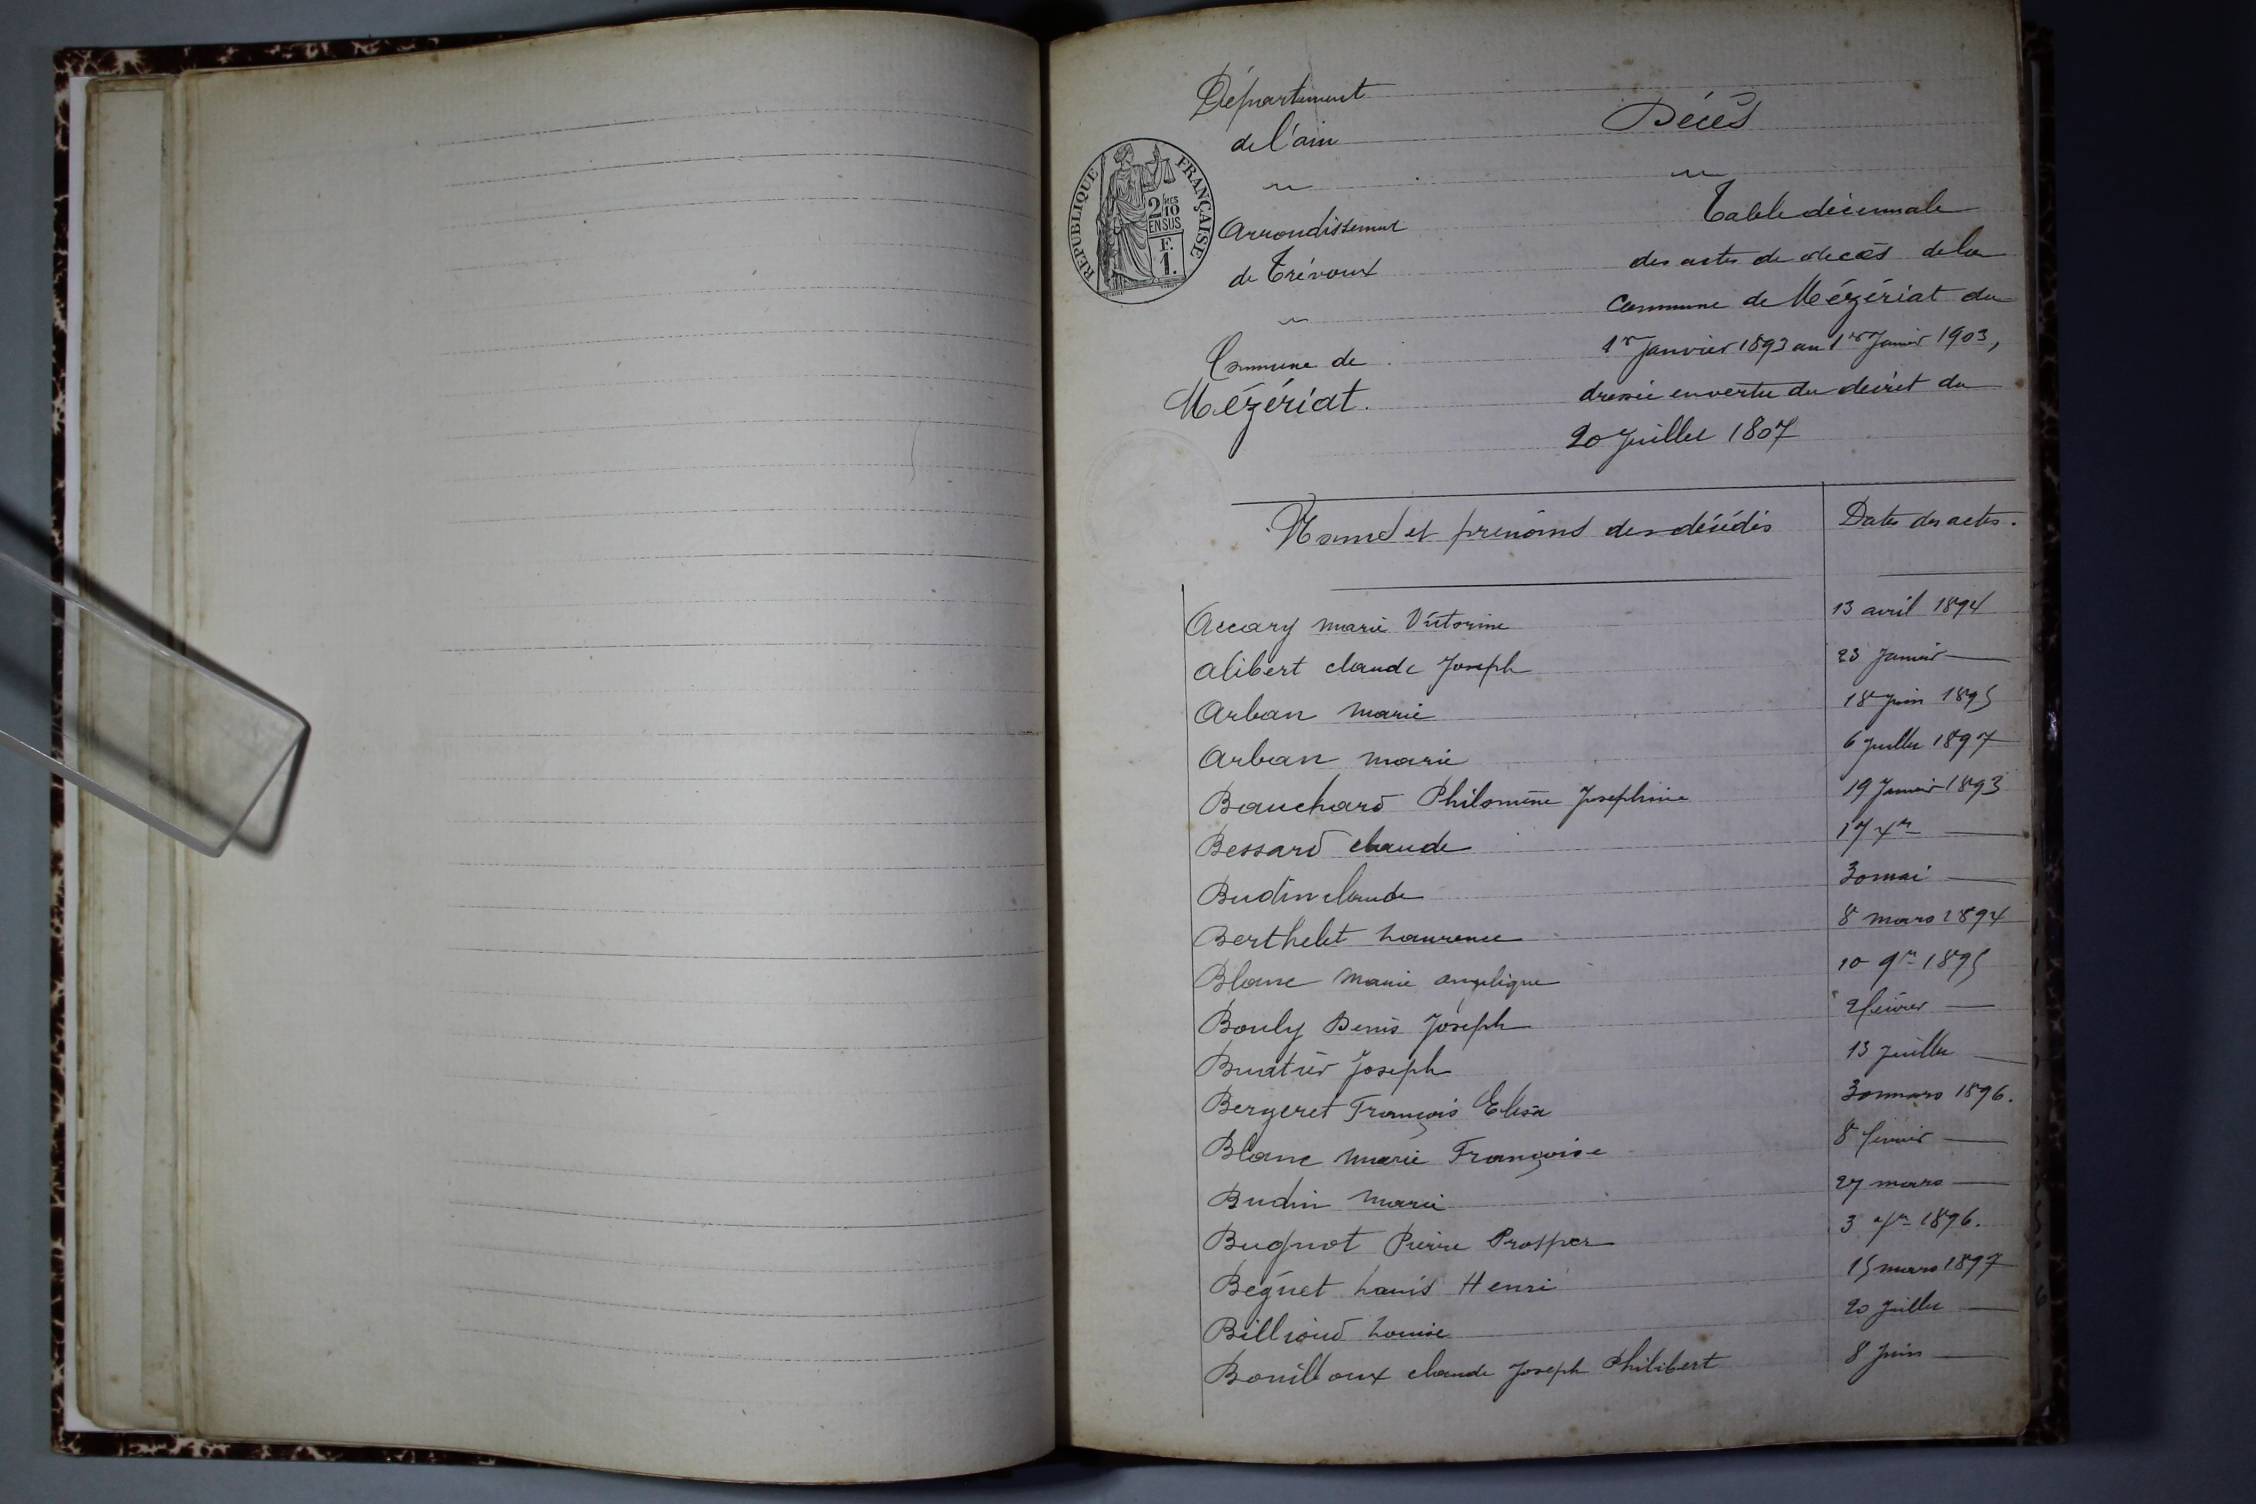 Département
de l'ain
Arrondissement
de Trévoux
Commune de
Mézériat.
RÉPUBLIQUE FRANÇAISE
2/10
EN SUS
F.
1.
Décès
Table décennale
des actes de décès de la
commune de Mézériat du
1er Janvier 1893 au 1er Janvier 1903,
dressée en vertu du décret du
20 Juillet 1807
Noms et prénoms des décédés Dates des actes.
Accary marie Victorine 13 avril 1894
Alibert claude Joseph 23 Janvier —
Arban marie 18 Juin 1895
Arban marie 6 Juillet 1897
Bauchard Philomène Josephine 19 Janvier 1893
Bessard claude 17 Xre —
Budin claude 30 mai —
Berthelet Laurence 8 mars 1894
Blanc Marie angelique 10 9re 1895
Bouly Denis Joseph 2 février —
Buatier Joseph 13 Juillet —
Bergeret François Elisa 30 mars 1896.
Blanc marie Françoise 8 février —
Budin marie 27 mars —
Bugnot Pierre Prosper 3 1896.
Béguet Louis Henri 15 mars 1897
Billioud Louise 20 Juillet —
Bouilloux claude Joseph Philibert 8 Juin —